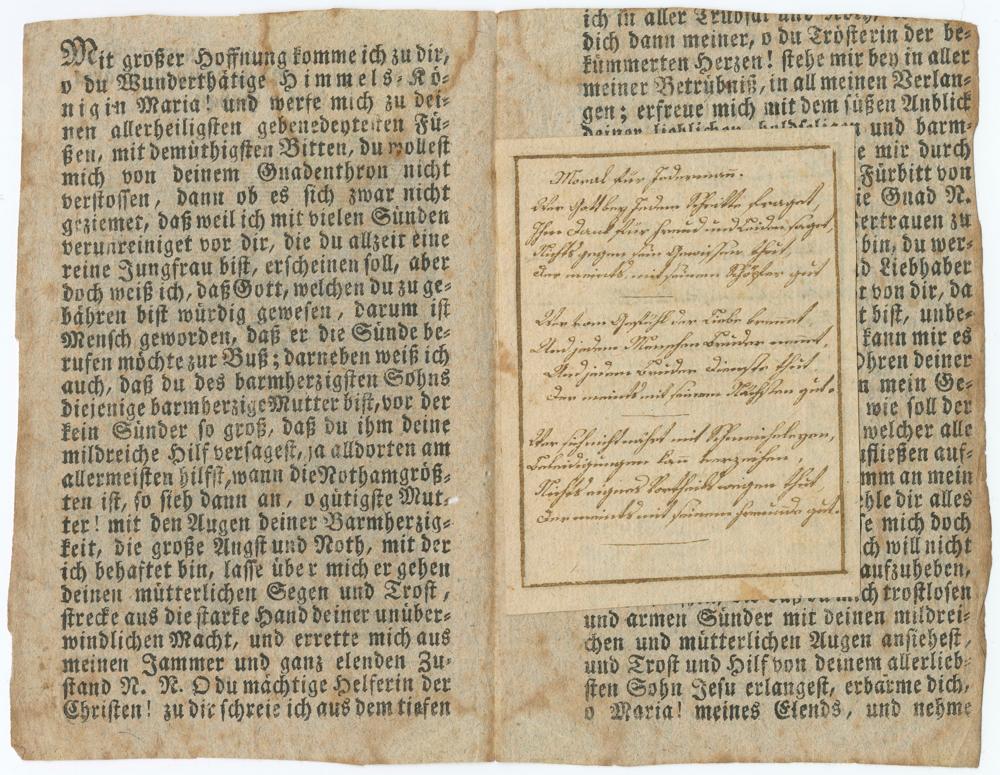 Mit großer Hoffnung komme ich zu dir,
o du Wunderthätige Himmels-Kö-
nigin Maria! und werfe mich zu dei-
nen allerheiligsten gebenedeyten Fü-
ßen, mit demüthigsten Bitten, du wollest
mich von deinem Gnadenthron nicht
verstossen, dann ob es sich zwar nicht
geziemet, daß weil ich mit vielen Sünden
verunreiniget vor dir, die du allzeit eine
reine Jungfrau bist, erscheinen soll, aber
doch weiß ich, daß Gott, welchen du zu ge-
bähren bist würdig gewesen, darum ist
Mensch geworden, daß er die Sünde be-
rufen möchte zur Buß; darneben weiß ich
auch, daß du des barmherzigsten Sohns
diejenige barmherzige Mutter bist, vor der
kein Sünder so groß, daß du ihm deine
mildreiche Hilf versagest, ja alldorten am
allermeisten hilfst, wann die Noth am größ-
ten ist, so sieh dann an, o gütigste Mut-
ter! mit den Augen deiner Barmherzig-
keit, die große Angst und Noth, mit der
ich behaftet bin, lasse über mich ergehen
deinen mütterlichen Segen und Trost,
strecke aus die starke Hand deiner unüber-
windlichen Macht, und errette mich aus
meinen Jammer und ganz elenden Zu-
stand N. N. O du mächtige Helferin der
Christen! zu dir schreie ich aus dem tiefen
ich in aller Trübsal und
dich dann meiner, o du Trösterin der be-
kümmerten Herzen! stehe mir bey in aller
meiner Betrübniß, in all meinen Verlan-
gen; erfreue mich mit dem süßen Anblick
deiner lieblichen holdseligen und barm-
e mir durch
Fürbitt von
ie Gnad N.
ertrauen zu
bin, du wer-
d Liebhaber
t von dir, da
t bist, unbe-
kann mir es
Ohren deiner
n mein Ge-
wie soll der
welcher alle
fließen auf-
mm an mein
hle dir alles
e mich doch
ch will nicht
aufzuheben,
daß du mich trostlosen
und armen Sünder mit deinen mildrei-
chen und mütterlichen Augen ansiehest,
und Trost und Hilf von deinem allerlieb-
sten Sohn Jesu erlangest, erbarme dich,
o Maria! meines Elends, und nehme
Moral für Jedermann.
Wer Gott bey jedem Schritte fraget,
Ihm Dank für Freud und Leiden saget,
Nichts gegen sein Gewissen thut,
Der meints mit seinem Schöpfer gut
Wer vom Gefühl der Liebe brennet
Und jeden Menschen Bruder nennt,
Und jedem Bruder Dienste thut
Der meints mit seinem Nächsten gut.
Wer sich nicht nährt mit Schmeicheleyen,
Beleidigungen kann verzeihen,
Nichts eignes Vortheils wegen thut
Der meints mit seinem Freunde gut.